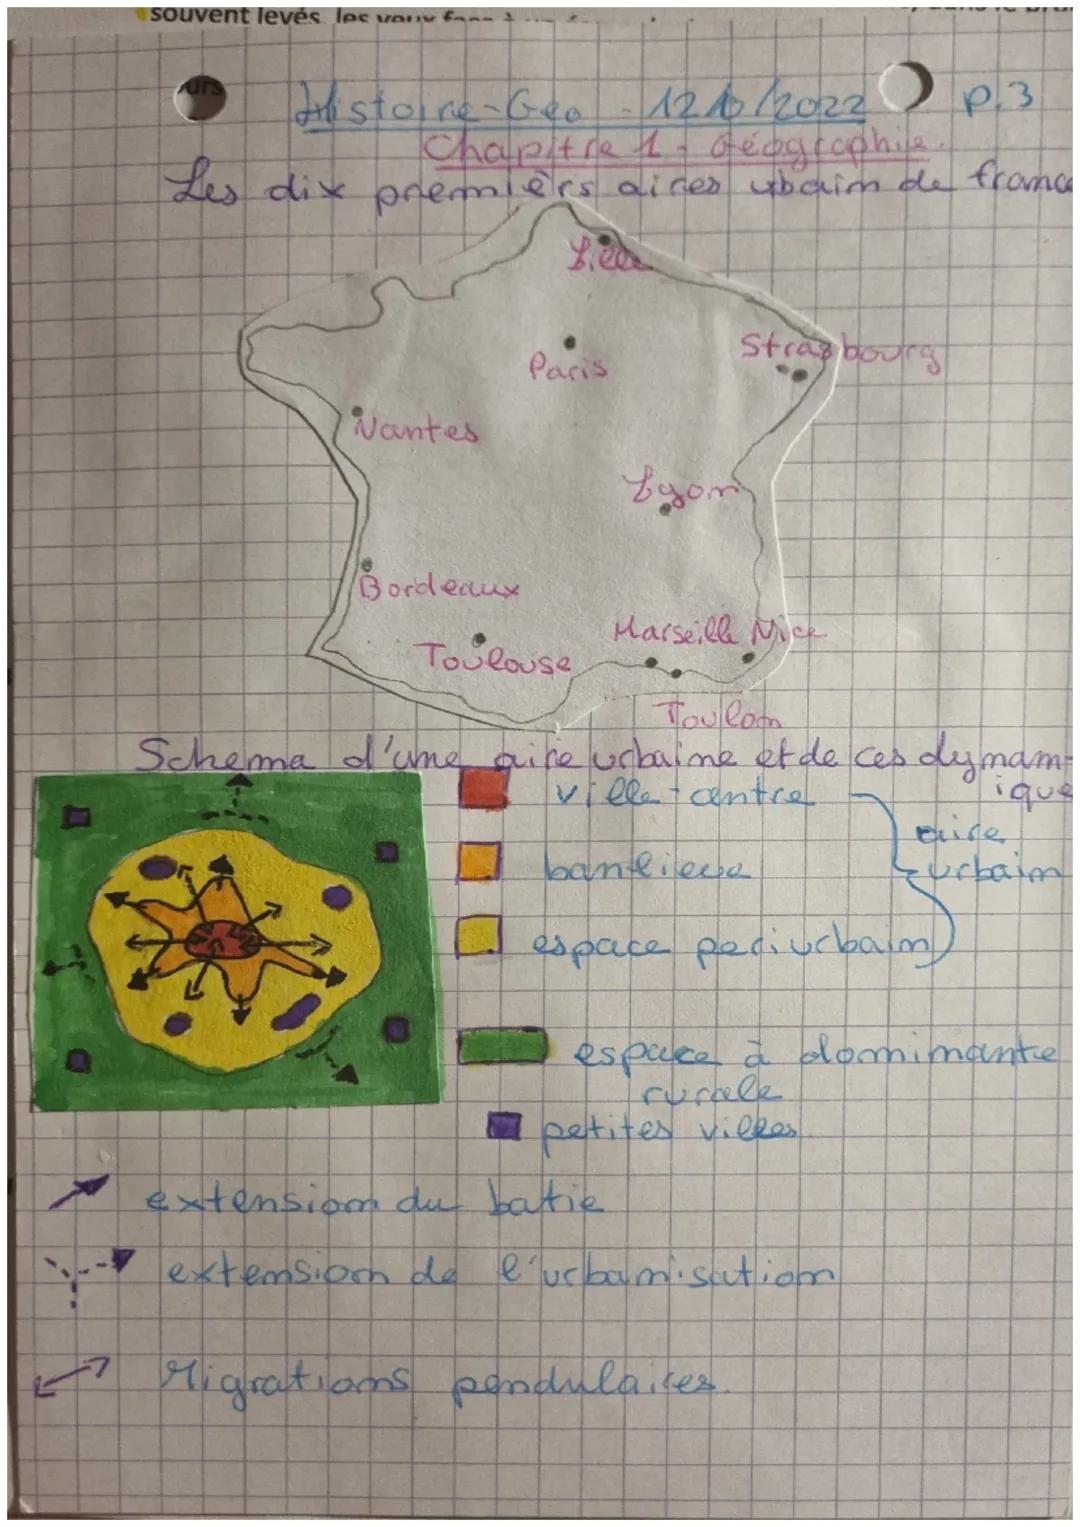 souvent levés, les yeux
ours
Histoire-Géo - 12/10/2022 p.3
Chapitre 1 - Géographie.
Les dix premièrs aires ubain de france
Lille
Paris
Strasbourg
Nantes
Lyon
Bordeaux
Marseille Nice
Toulouse
Toulon
Schema d'une aire urbaine et de ces dynam-
ique
ville-centre
aire
urbain
banlieue
espace periurbain
espace à dominante
rurale
petites villes
extension du batie
extension de l'urbanisation
Migrations pendulaires.